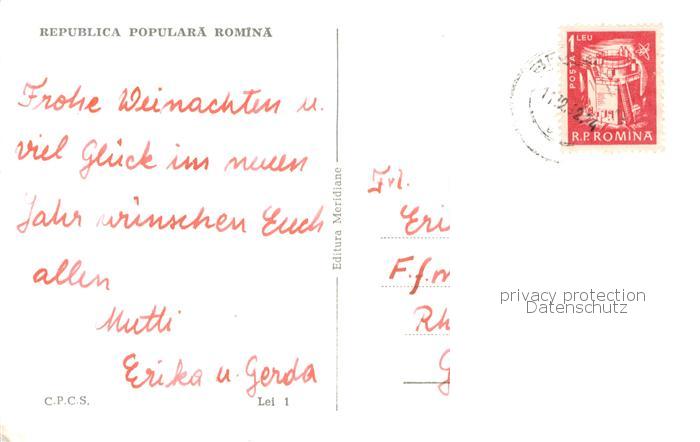 REPUBLICA POPULARĂ ROMÎNĂ
Frohe Weinachten u.
viel Glück im neuen
Jahr wünschen Euch
allen
Mutti
Erika u. Gerda
C.P.C.S. Lei 1
Editura Meridiane
1 LEU
POSTA
R.P.ROMINA
Frl.
Eri
F.f.m
Rh
G
privacy protection
Datenschutz